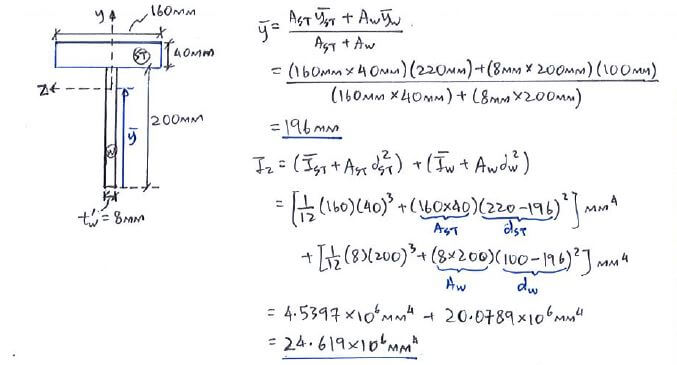 160mm
y
ST
40mm
z
ȳ
200mm
W
t'w = 8mm
ȳ = (A_ST ȳ_ST + A_W ȳ_W) / (A_ST + A_W)
= ((160mm×40mm)(220mm)+(8mm×200mm)(100mm)) / ((160mm×40mm)+(8mm×200mm))
= 196mm
I_z = (Ī_ST + A_ST d²_ST) + (Ī_W + A_W d²_W)
= [1/12 (160)(40)³ + (160×40)(220-196)²] mm⁴
A_ST d_ST
+ [1/12 (8)(200)³ + (8×200)(100-196)²] mm⁴
A_W d_W
= 4.5397×10⁶mm⁴ + 20.0789×10⁶mm⁴
= 24.619×10⁶mm⁴